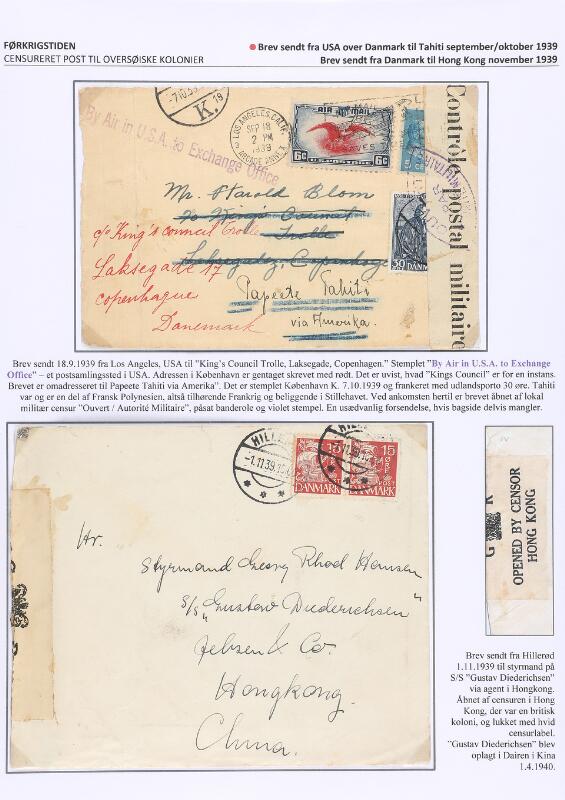 FØRKRIGSTIDEN
CENSURERET POST TIL OVERSØISKE KOLONIER
Brev sendt fra USA over Danmark til Tahiti september/oktober 1939
Brev sendt fra Danmark til Hong Kong november 1939
-7.10.39
K.
By Air in U.S.A. to Exchange Office
LOS ANGELES, CALIF.
SEP 18
2 PM
1939
ARCADE ANNEX
AIR MAIL
6c
U.S. POSTAGE
6c
Contrôle postal militaire
30
DANMARK
PAR
Mr. Harold Blom
℅ King's Council
Trolle
Laksegade, Copenhag
℅ King's council Trolle
Laksegade 17
Copenhague
Danemark
Papeete Tahiti
via Amerika.
Brev sendt 18.9.1939 fra Los Angeles, USA til "King's Council Trolle, Laksegade, Copenhagen." Stemplet "By Air in U.S.A. to Exchange
Office" – et postsamlingssted i USA. Adressen i København er gentaget skrevet med rødt. Det er uvist, hvad "Kings Council" er for en instans.
Brevet er omadresseret til Papeete Tahiti via Amerika". Det er stemplet København K. 7.10.1939 og frankeret med udlandsporto 30 øre. Tahiti
var og er en del af Fransk Polynesien, altså tilhørende Frankrig og beliggende i Stillehavet. Ved ankomsten hertil er brevet åbnet af lokal
militær censur "Ouvert / Autorité Militaire", påsat banderole og violet stempel. En usædvanlig forsendelse, hvis bagside delvis mangler.
HILLE
-1.11.39.
15
DANMARK
15
ØRE
POST
DANMARK
Hr.
Styrmand Georg Rhod Hansen
S/S „Gustav Diederichsen"
Jebsen & Co.
Hongkong.
China.
G
R
OPENED BY CENSOR
HONG KONG
Brev sendt fra Hillerød
1.11.1939 til styrmand på
S/S "Gustav Diederichsen"
via agent i Hongkong.
Åbnet af censuren i Hong
Kong, der var en britisk
koloni, og lukket med hvid
censurlabel.
"Gustav Diederichsen" blev
oplagt i Dairen i Kina
1.4.1940.